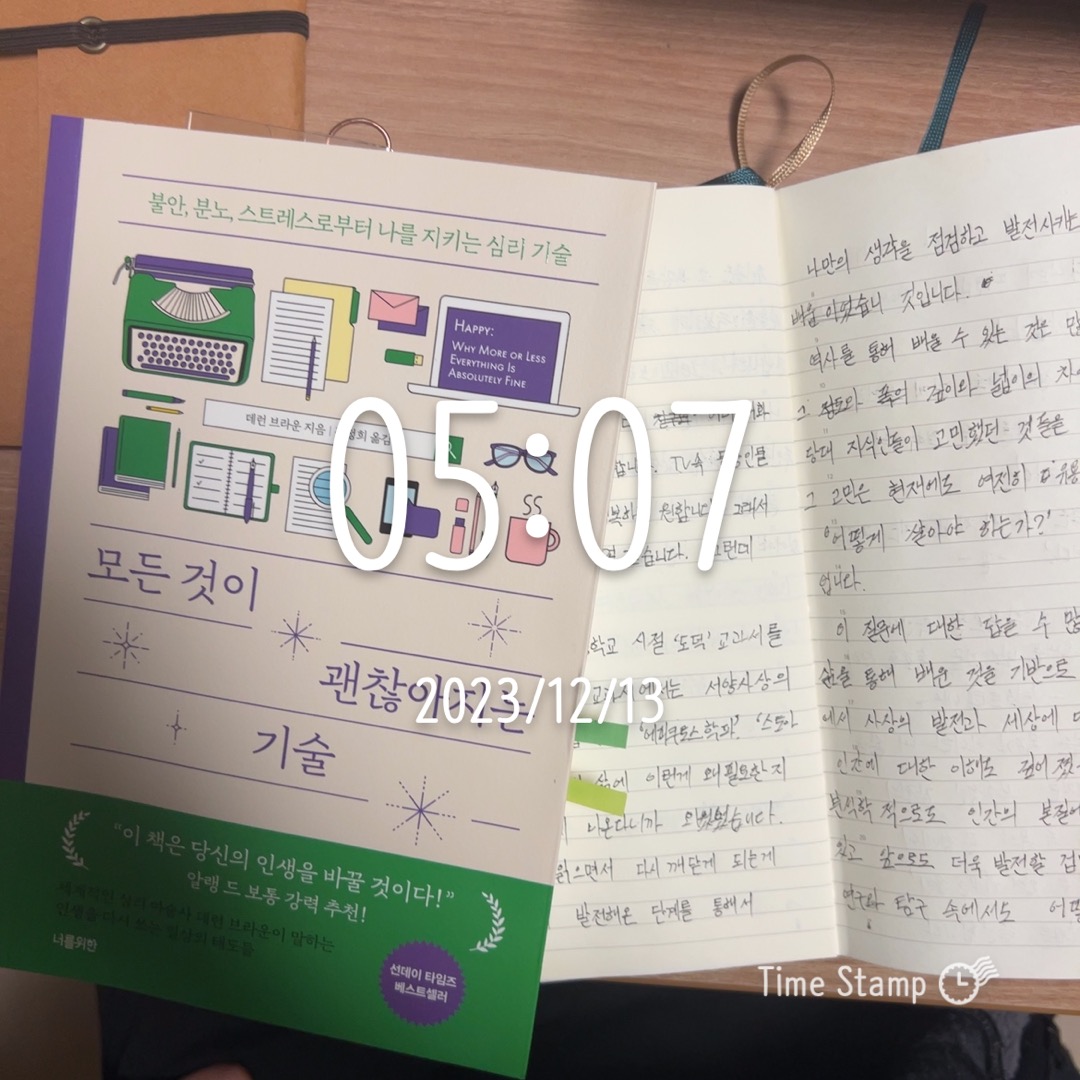 불안, 분노, 스트레스로부터 나를 지키는 심리 기술
HAPPY:
WHY MORE OR LESS
EVERYTHING IS
ABSOLUTELY FINE
데런 브라운 지음
옮김
모든 것이
괜찮아지는
기술
“이 책은 당신의 인생을 바꿀 것이다!”
알랭 드 보통 강력 추천!
세계적인 심리 마술사 데런 브라운이 말하는
인생을
너를위한
선데이 타임즈
베스트셀러
05:07
2023/12/13
TV속
원합니다. 그래서
그런데
시절 '도덕' 교과서를
서양사상의
'에피쿠로스학파' '스토아
삶에 이런게 왜 필요한지
나온다니까 외웠었습니다.
읽으면서 다시 깨닫게 되는게
발전해온 단계를 통해서
나만의 생각을 점검하고 발전시키는
배움이었습니 것입니다.
역사를 통해 배울 수 있는 것은
그 폭의 깊이와 넓이의
당대 지식인들이 고민했던 것들을
그 고민은 현재에도 여전히
'어떻게 살아야 하는가?'
입니다.
이 질문에 대한 답을 수
삶을 통해 배운 것을 기반으로
에서 사상의 발전과 세상에
인간에 대한 이해도 깊어졌
적으로도 인간의 본질에
있고 앞으로도 더욱 발전할
연구와 탐구 속에서도
Time Stamp